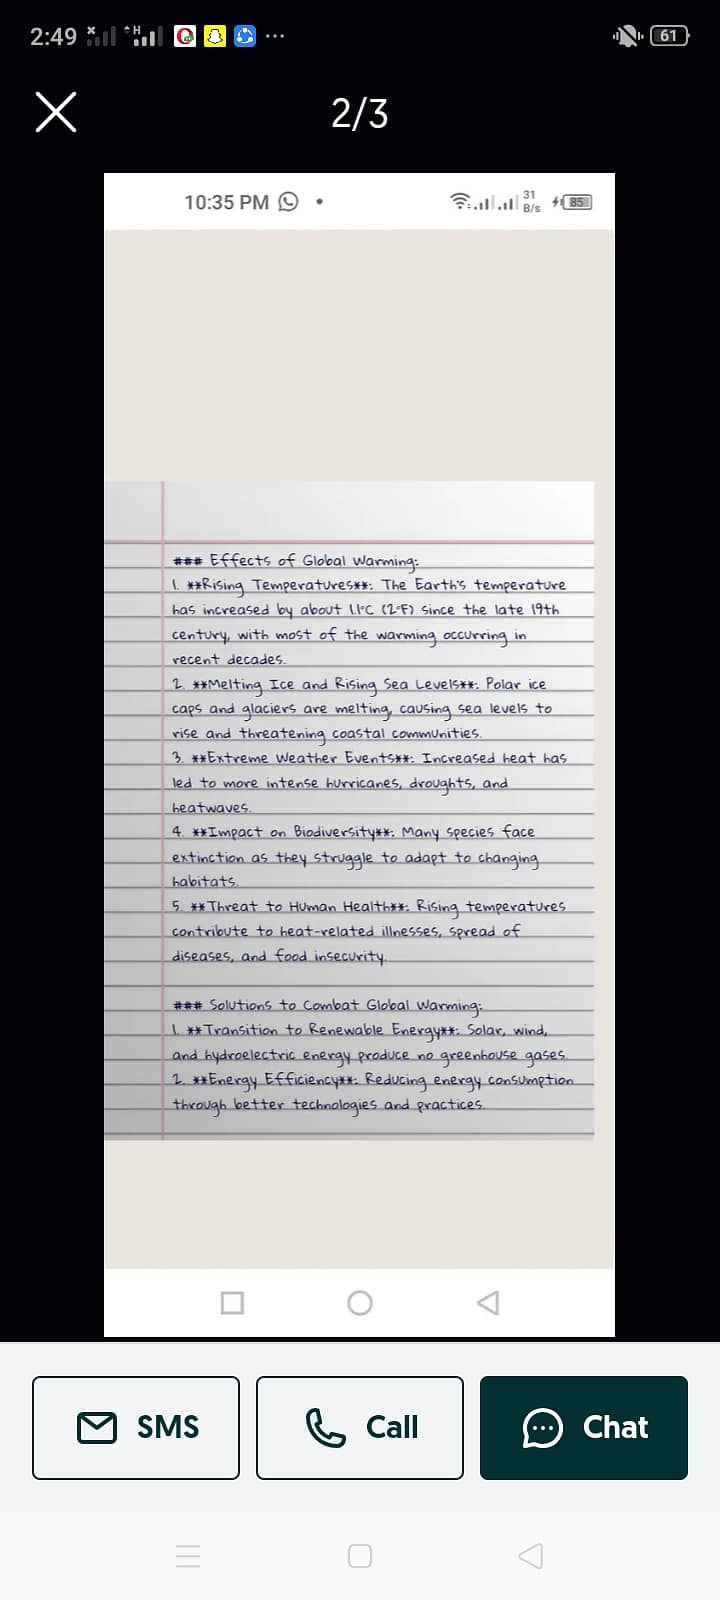 2:49
61
2/3
10:35 PM
31
B/s
85
### Effects of Global Warming:
1. **Rising Temperatures**: The Earth's temperature
has increased by about 1.1°C (2°F) since the late 19th
century, with most of the warming occurring in
recent decades.
2. **Melting Ice and Rising Sea Levels**: Polar ice
caps and glaciers are melting, causing sea levels to
rise and threatening coastal communities.
3. **Extreme Weather Events**: Increased heat has
led to more intense hurricanes, droughts, and
heatwaves.
4. **Impact on Biodiversity**: Many species face
extinction as they struggle to adapt to changing
habitats.
5. **Threat to Human Health**: Rising temperatures
contribute to heat-related illnesses, spread of
diseases, and food insecurity.
### Solutions to Combat Global Warming:
1. **Transition to Renewable Energy**: Solar, wind,
and hydroelectric energy produce no greenhouse gases.
2. **Energy Efficiency**: Reducing energy consumption
through better technologies and practices.
SMS
Call
Chat